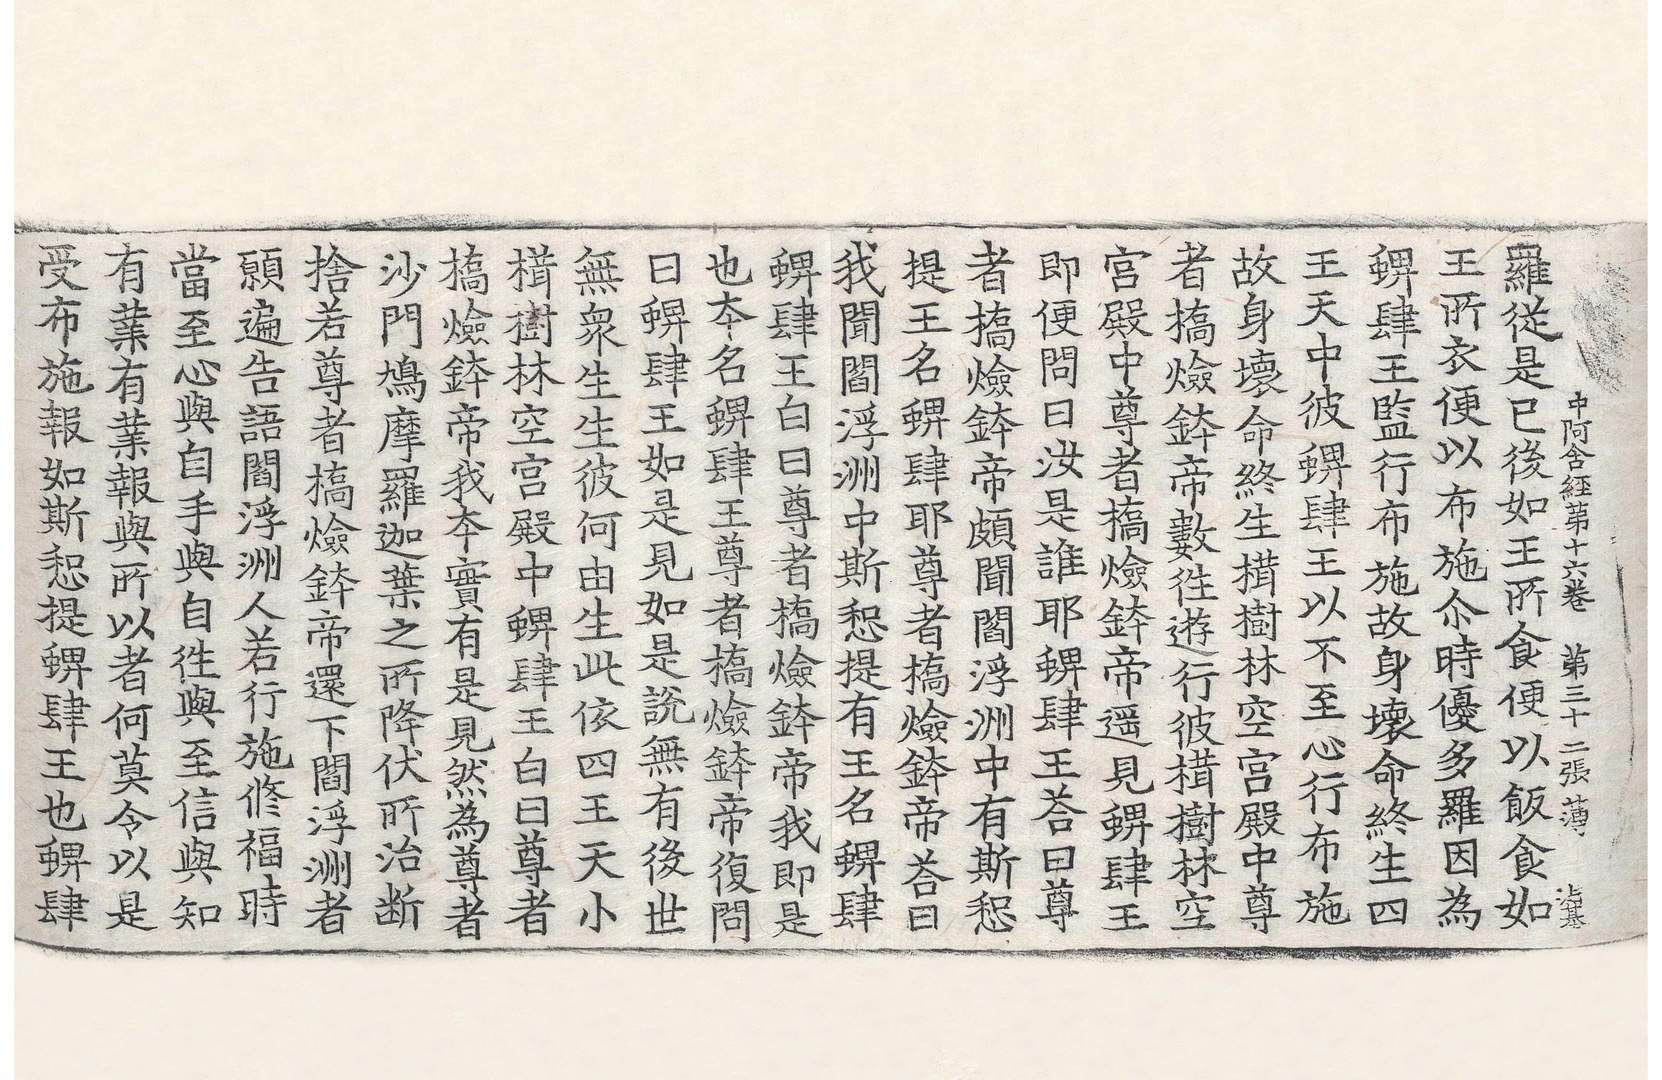 中阿含經第十六卷　第三十二張　薄
羅從是已後如王所食便以飯食如
王所衣便以布施尒時優多羅因為
蜱肆王監行布施故身壞命終生四
王天中彼蜱肆王以不至心行布施
故身壞命終生榵樹林空宮殿中尊
者橋㷿鉢帝數往遊行彼榵樹林空
宮殿中尊者橋㷿鉢帝遥見蜱肆王
即便問曰汝是誰耶蜱肆王荅曰尊
者橋㷿鉢帝頗聞閻浮洲中有斯惒
提王名蜱肆耶尊者橋㷿鉢帝荅曰
我聞閻浮洲中斯惒提有王名蜱肆
蜱肆王白曰尊者橋㷿鉢帝我即是
也本名蜱肆王尊者橋㷿鉢帝復問
曰蜱肆王如是見如是說無有後世
無衆生生彼何由生此依四王天小
榵樹林空宮殿中蜱肆王白曰尊者
橋㷿鉢帝我本實有是見然為尊者
沙門鳩摩羅迦葉之所降伏所治斷
捨若尊者橋㷿鉢帝還下閻浮洲者
願遍告語閻浮洲人若行施修福時
當至心與自手與自往與至信與知
有業有業報與所以者何莫令以是
受布施報如斯惒提蜱肆王也蜱肆